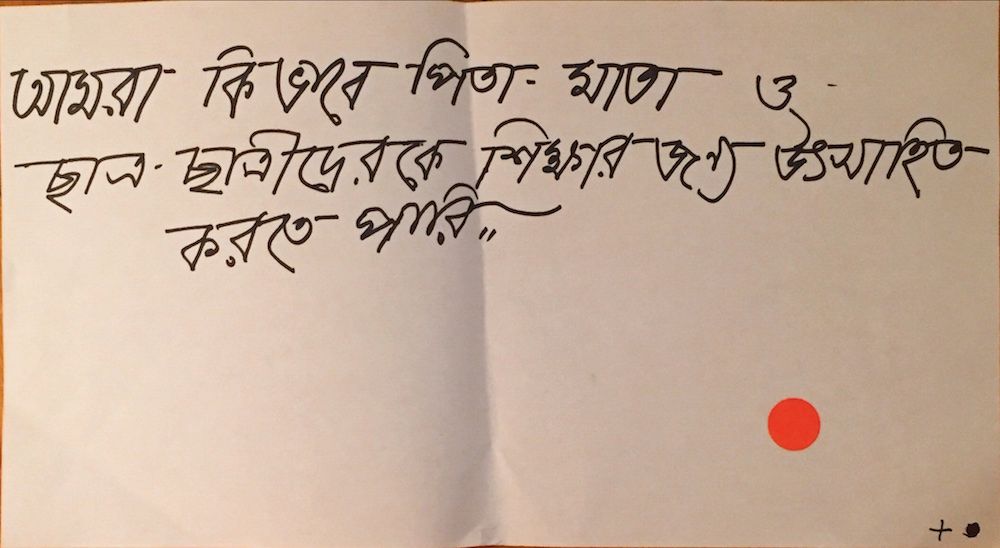 আমরা কি ভাবে পিতা- মাতা ও
ছাত্র- ছাত্রীদেরকে শিক্ষার জন্য উৎসাহিত
করতে পারি..
+